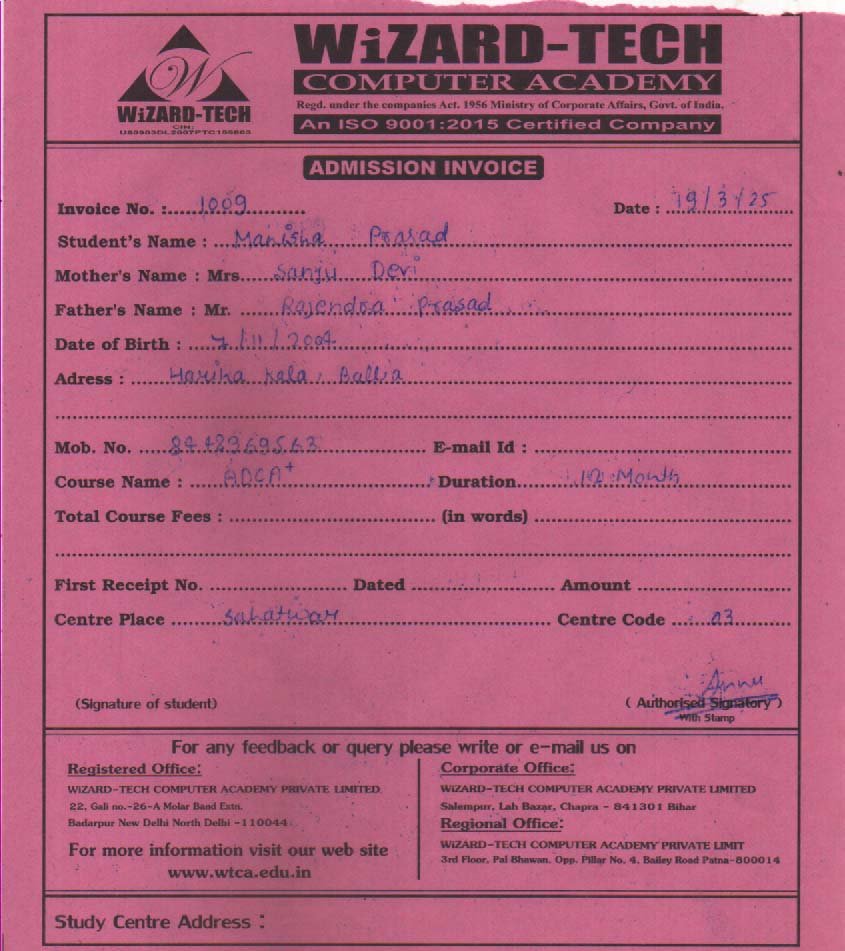 WiZARD-TECH
COMPUTER ACADEMY
Regd. under the companies Act. 1956 Ministry of Corporate Affairs, Govt. of India.
An ISO 9001:2015 Certified Company
W
WiZARD-TECH
CIN:
ADMISSION INVOICE
Invoice No. : 1009 Date : 19/3/25
Student's Name : Manisha Prasad
Mother's Name : Mrs Sanju Devi
Father's Name : Mr. Rajendra Prasad
Date of Birth : 7/11/2004
Adress : Harika Kala, Ballia
Mob. No. 8448969563 E-mail Id :
Course Name : ADCA+ Duration 12 Month
Total Course Fees : (in words)
First Receipt No. Dated Amount
Centre Place Sahatwar Centre Code 03
Annu
(Signature of student) ( Authorised Signatory )
With Stamp
For any feedback or query please write or e-mail us on
Registered Office:
WiZARD-TECH COMPUTER ACADEMY PRIVATE LIMITED
22, Gali no.-26-A Molar Band Extn.
Badarpur New Delhi North Delhi -110044
For more information visit our web site
www.wtca.edu.in
Corporate Office:
WiZARD-TECH COMPUTER ACADEMY PRIVATE LIMITED
Salempur, Lah Bazar, Chapra - 841301 Bihar
Regional Office:
WiZARD-TECH COMPUTER ACADEMY PRIVATE LIMIT
3rd Floor, Pal Bhawan, Opp. Pillar No. 4, Bailey Road Patna-800014
Study Centre Address :